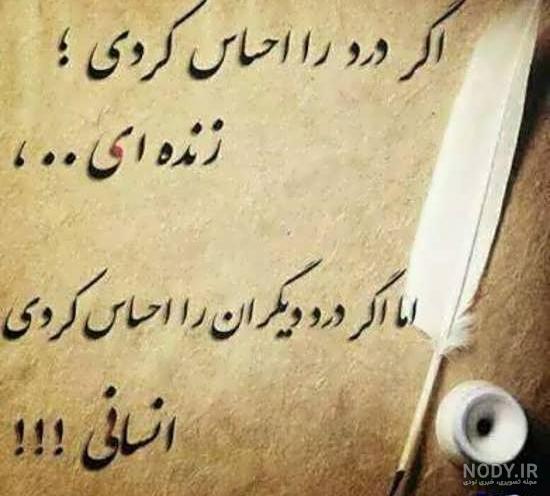 اگر درد را احساس کردی ؛
زنده ای .. ،
اما اگر درد دیگران را احساس کردی
انسانی !!!
NODY.IR
مجله تصویری، خبری نودی